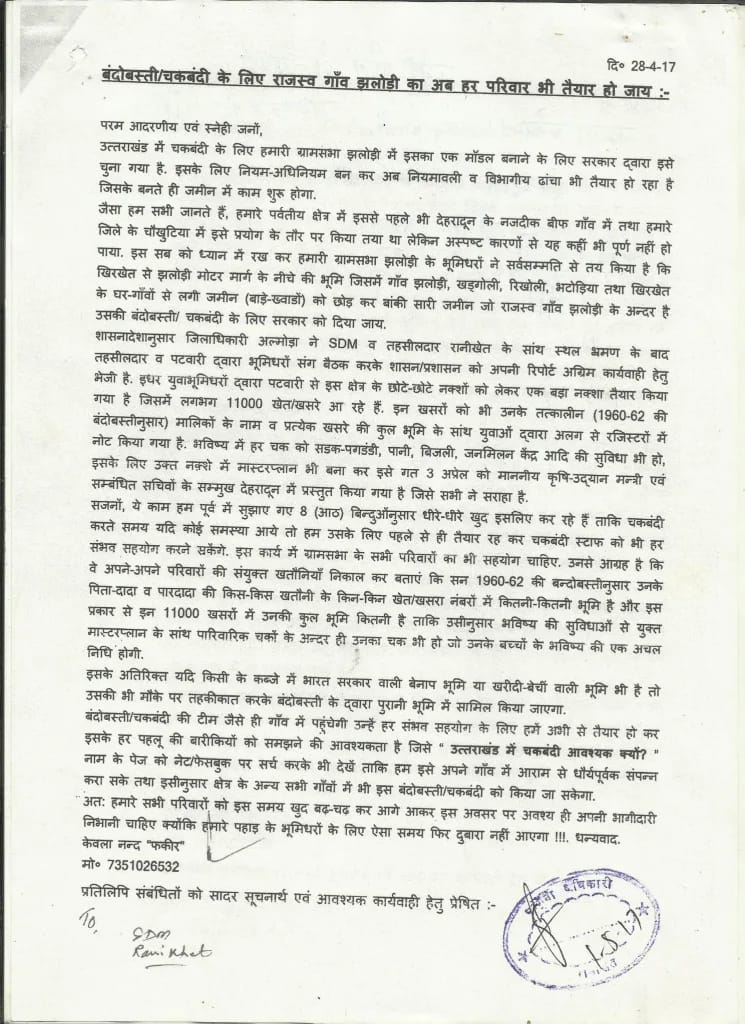 दि० 28-4-17
बंदोबस्ती/चकबंदी के लिए राजस्व गाँव झलोडी का अब हर परिवार भी तैयार हो जाय :-
परम आदरणीय एवं स्नेही जनों,
उत्तराखंड में चकबंदी के लिए हमारी ग्रामसभा झलोड़ी में इसका एक मॉडल बनाने के लिए सरकार द्वारा इसे
चुना गया है. इसके लिए नियम-अधिनियम बन कर अब नियमावली व विभागीय ढांचा भी तैयार हो रहा है
जिसके बनते ही जमीन में काम शुरू होगा.
जैसा हम सभी जानते हैं, हमारे पर्वतीय क्षेत्र में इससे पहले भी देहरादून के नजदीक बीफ गाँव में तथा हमारे
जिले के चौखुटिया में इसे प्रयोग के तौर पर किया तया था लेकिन अस्पष्ट कारणों से यह कहीं भी पूर्ण नहीं हो
पाया. इस सब को ध्यान में रख कर हमारी ग्रामसभा झलोड़ी के भूमिधरों ने सर्वसम्मति से तय किया है कि
खिरखेत से झलोड़ी मोटर मार्ग के नीचे की भूमि जिसमें गाँव झलोड़ी, खड्गोली, रिखोली, भटोड़िया तथा खिरखेत
के घर-गाँवों से लगी जमीन (बाड़े-ख्वाडों) को छोड़ कर बांकी सारी जमीन जो राजस्व गाँव झलोड़ी के अन्दर है
उसकी बंदोबस्ती/ चकबंदी के लिए सरकार को दिया जाय.
शासनादेशानुसार जिलाधिकारी अल्मोड़ा ने SDM व तहसीलदार रानीखेत के सांथ स्थल भ्रमण के बाद
तहसीलदार व पटवारी द्वारा भूमिधरों संग बैठक करके शासन/प्रशासन को अपनी रिपोर्ट अग्रिम कार्यवाही हेतु
भेजी है. इधर युवाभूमिधरों द्वारा पटवारी से इस क्षेत्र के छोटे-छोटे नक्शों को लेकर एक बड़ा नक्शा तैयार किया
गया है जिसमें लगभग 11000 खेत/खसरे आ रहे हैं. इन खसरों को भी उनके तत्कालीन (1960-62 की
बंदोबस्तीनुसार) मालिकों के नाम व प्रत्येक खसरे की कुल भूमि के सांथ युवाओं द्वारा अलग से रजिस्टरों में
नोट किया गया है. भविष्य में हर चक को सडक-पगडंडी, पानी, बिजली, जनमिलन केंद्र आदि की सुविधा भी हो,
इसके लिए उक्त नक़्शे में मास्टरप्लान भी बना कर इसे गत 3 अप्रेल को माननीय कृषि-उद्यान मन्त्री एवं
सम्बंधित सचिवों के सम्मुख देहरादून में प्रस्तुत किया गया है जिसे सभी ने सराहा है.
सजनों, ये काम हम पूर्व में सुझाए गए 8 (आठ) बिन्दुओंनुसार धीरे-धीरे खुद इसलिए कर रहे हैं ताकि चकबंदी
करते समय यदि कोई समस्या आये तो हम उसके लिए पहले से ही तैयार रह कर चकबंदी स्टाफ को भी हर
संभव सहयोग करने सकेंगे. इस कार्य में ग्रामसभा के सभी परिवारों का भी सहयोग चाहिए. उनसे आग्रह है कि
वे अपने-अपने परिवारों की संयुक्त खतौनियाँ निकाल कर बताएं कि सन 1960-62 की बन्दोबस्तीनुसार उनके
पिता-दादा व पारदादा की किस-किस खतौनी के किन-किन खेत/खसरा नंबरों में कितनी-कितनी भूमि है और इस
प्रकार से इन 11000 खसरों में उनकी कुल भूमि कितनी है ताकि उसीनुसार भविष्य की सुविधाओं से युक्त
मास्टरप्लान के सांथ पारिवारिक चकों के अन्दर ही उनका चक भी हो जो उनके बच्चों के भविष्य की एक अचल
निधि होगी.
इसके अतिरिक्त यदि किसी के कब्जे में भारत सरकार वाली बेनाप भूमि या खरीदी-बेचीं वाली भूमि भी है तो
उसकी भी मौके पर तहकीकात करके बंदोबस्ती के द्वारा पुरानी भूमि में सामिल किया जाएगा.
बंदोबस्ती/चकबंदी की टीम जैसे ही गाँव में पहुंचेगी उन्हें हर संभव सहयोग के लिए हमें अभी से तैयार हो कर
इसके हर पहलू की बारीकियों को समझने की आवश्यकता है जिसे " उत्तराखंड में चकबंदी आवश्यक क्यों? "
नाम के पेज को नेट/फेसबुक पर सर्च करके भी देखें ताकि हम इसे अपने गाँव में आराम से धौर्यपूर्वक संपन्न
करा सके तथा इसीनुसार क्षेत्र के अन्य सभी गाँवों में भी इस बंदोबस्ती/चकबंदी को किया जा सकेगा.
अत: हमारे सभी परिवारों को इस समय खुद बढ़-चढ़ कर आगे आकर इस अवसर पर अवश्य ही अपनी भागीदारी
निभानी चाहिए क्योंकि हमारे पहाड़ के भूमिधरों के लिए ऐसा समय फिर दुबारा नहीं आएगा !!!. धन्यवाद.
केवला नन्द "फकीर"
मो० 7351026532
प्रतिलिपि संबंधितों को सादर सूचनार्थ एवं आवश्यक कार्यवाही हेतु प्रेषित :-
To,
SDM
Ranikhet